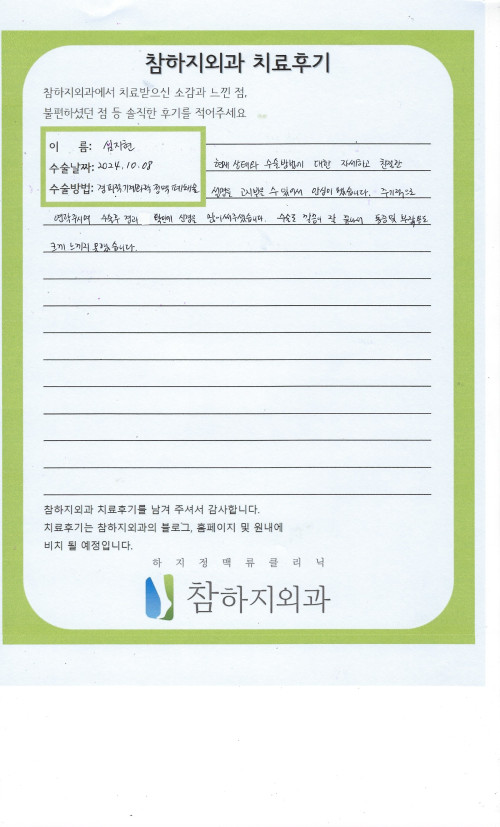 참하지외과 치료후기
참하지외과에서 치료받으신 소감과 느낀 점,
불편하셨던 점 등 솔직한 후기를 적어주세요
이 름: 심지현
수술날짜: 2024.10.08
수술방법: 정맥
현재 상태와 수술방법에 대한 자세하고 친절한
설명을 고시받을 수 있어서 안심이 됐습니다. 주기적으로
연락주시며 수술후 경과 확인에 신경을 많이써주셨습니다. 수술도 깔끔히 잘 끝나서 통증및 불편함도
크게 느끼지 못했습니다.
참하지외과 치료후기를 남겨 주셔서 감사합니다.
치료후기는 참하지외과의 블로그, 홈페이지 및 원내에
비치 될 예정입니다.
하지정맥류클리닉
참하지외과